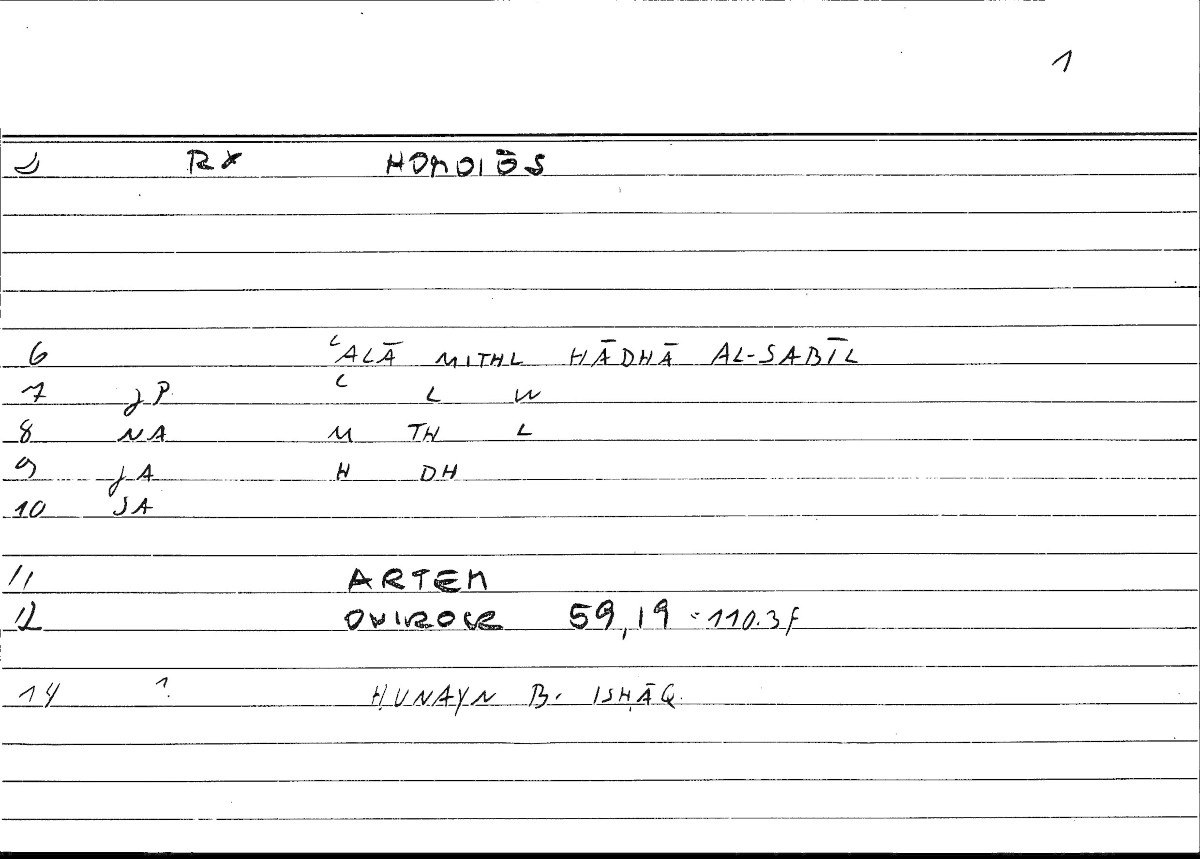 1
RX HOMOIŌS
6 ʿALĀ MITHL HĀDHĀ AL-SABĪL
7 JP ʿ L W
8 NA M TH L
9 JA H DH
10 SA
11 ARTEM
12 OVIROCR 59,19 = 110.3f
14 ? ḤUNAYN B. ISḤĀQ